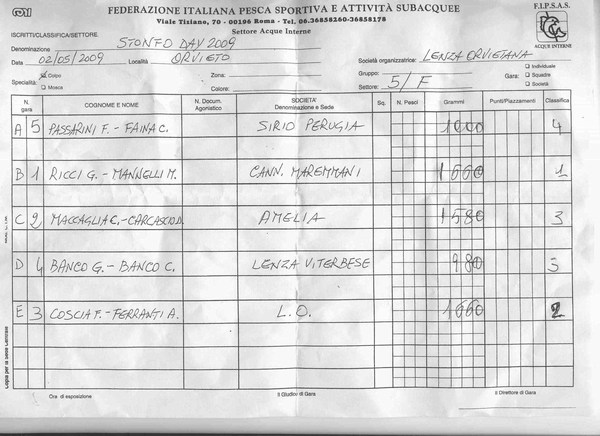 FEDERAZIONE ITALIANA PESCA SPORTIVA E ATTIVITÀ SUBACQUEE
F.I.P.S.A.S.
Viale Tiziano, 70 - 00196 Roma - Tel. 06.36858260-36858178
Settore Acque Interne
ACQUE INTERNE
ISCRITTI/CLASSIFICA/SETTORE
Denominazione STONFO DAY 2009
Data 02/05/2009 Località ORVIETO Società organizzatrice: LENZA ORVIETANA
Specialità: Colpo Mosca Zona: Colore: Gruppo: Settore: 5/F Gara: Individuale Squadre Società
N. gara COGNOME E NOME N. Docum. Agonistico SOCIETA' Denominazione e Sede Sq. N. Pesci Grammi Punti/Piazzamenti Classifica
A 5 PASSARINI F. - FAINA C. SIRIO PERUGIA 1000 4
B 1 RICCI G. - MANNELLI M. CANN. MAREMMANI 1
C 2 MACCAGLIA C. - CARCASCIO D. AMELIA 1580 3
D 4 BANCO G. - BANCO C. LENZA VITERBESE 980 5
E 3 COSCIA F. - FERRANTI A. L.O. 1660 2
Ora di esposizione Il Giudice di Gara Il Direttore di Gara